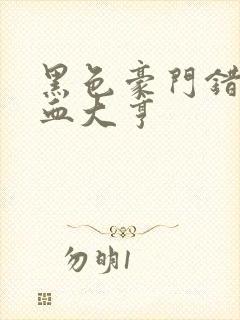 黑色豪門錯
血大亨
勿明1